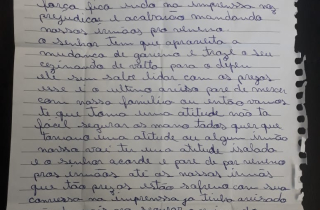 força fica indo na impressa nos
prejudicar e acabou mandando
nossos irmãos pro veneno
o senhor tem que aproveita a
mudança de governo e traze o seu
cozinando de volta para o depen
ele sim sabe lidar com os prezos
esse é o ultimo aviso pare de mexer
com nossa familia ou então vamos
te que toma uma atitude não ta
facil segurar os mano todos quer que
tomamo uma atitude ou algum irmão
nosso vai ter uma atitude isolada
e o senhor acorde e pare de por veneno
pros irmãos até as nossas irmãs
que tão prezas estão sofrendo com sua
conversa na impressa ja tinha avisado